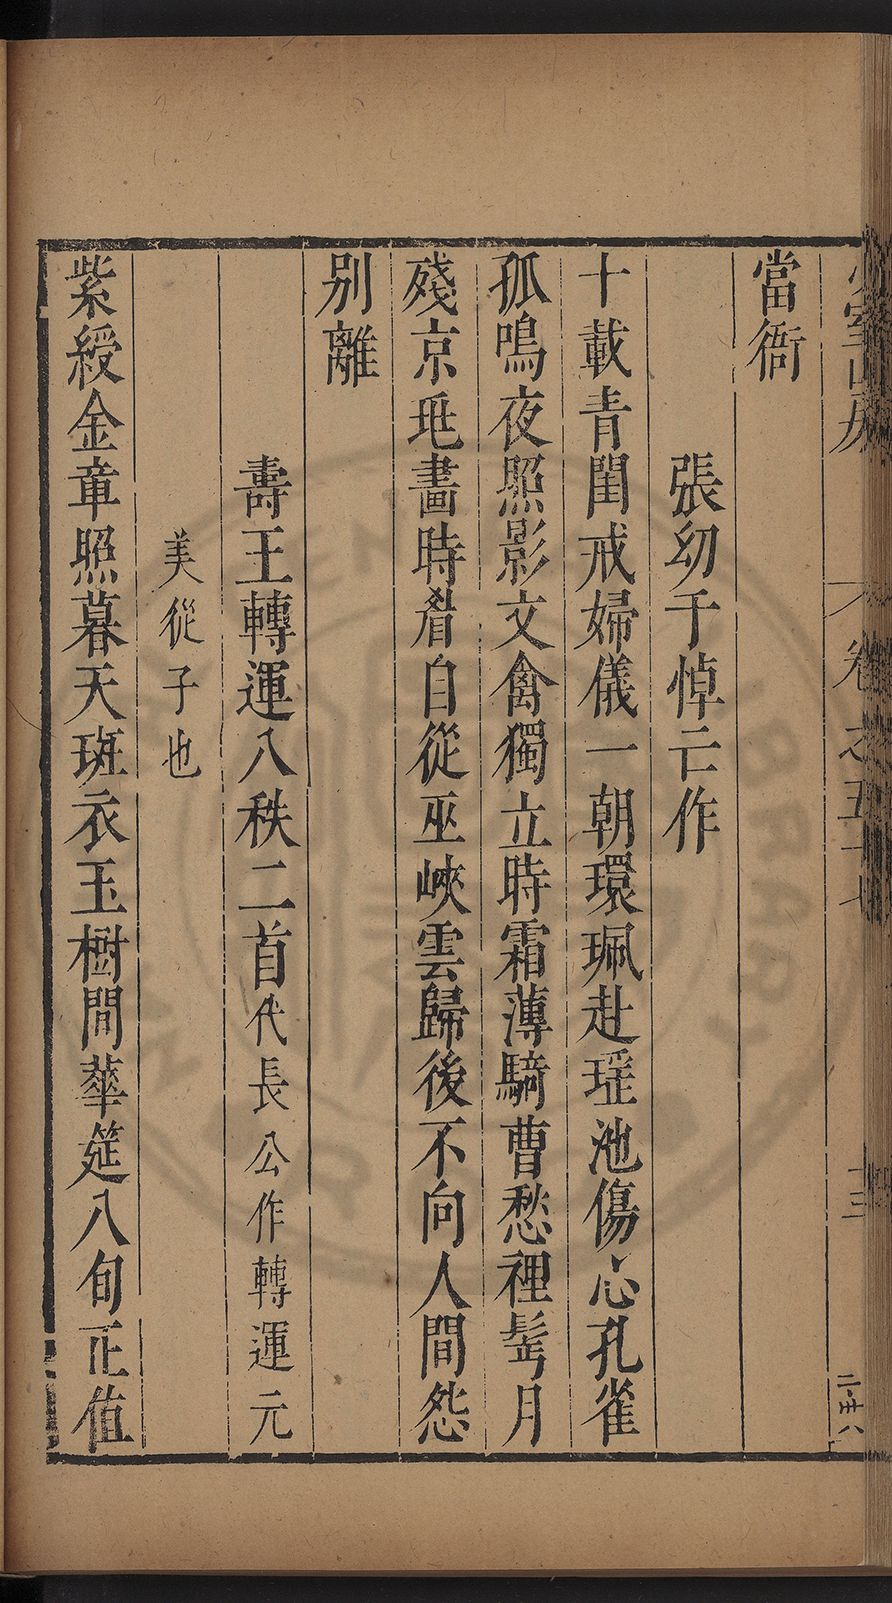 當衙
張幼于悼亡作
十載青閨戒婦儀一朝環珮赴瑶池傷心孔雀
孤鳴夜照影文禽獨立時霜薄騎曹愁裡髩月
殘京兆畵時眉自從巫峽雲歸後不向人間怨
别離
壽王轉運八秩二首代長公作轉運元
美從子也
紫綬金章照暮天斑衣玉樹間華筵八旬正值
卷之五十七
十三